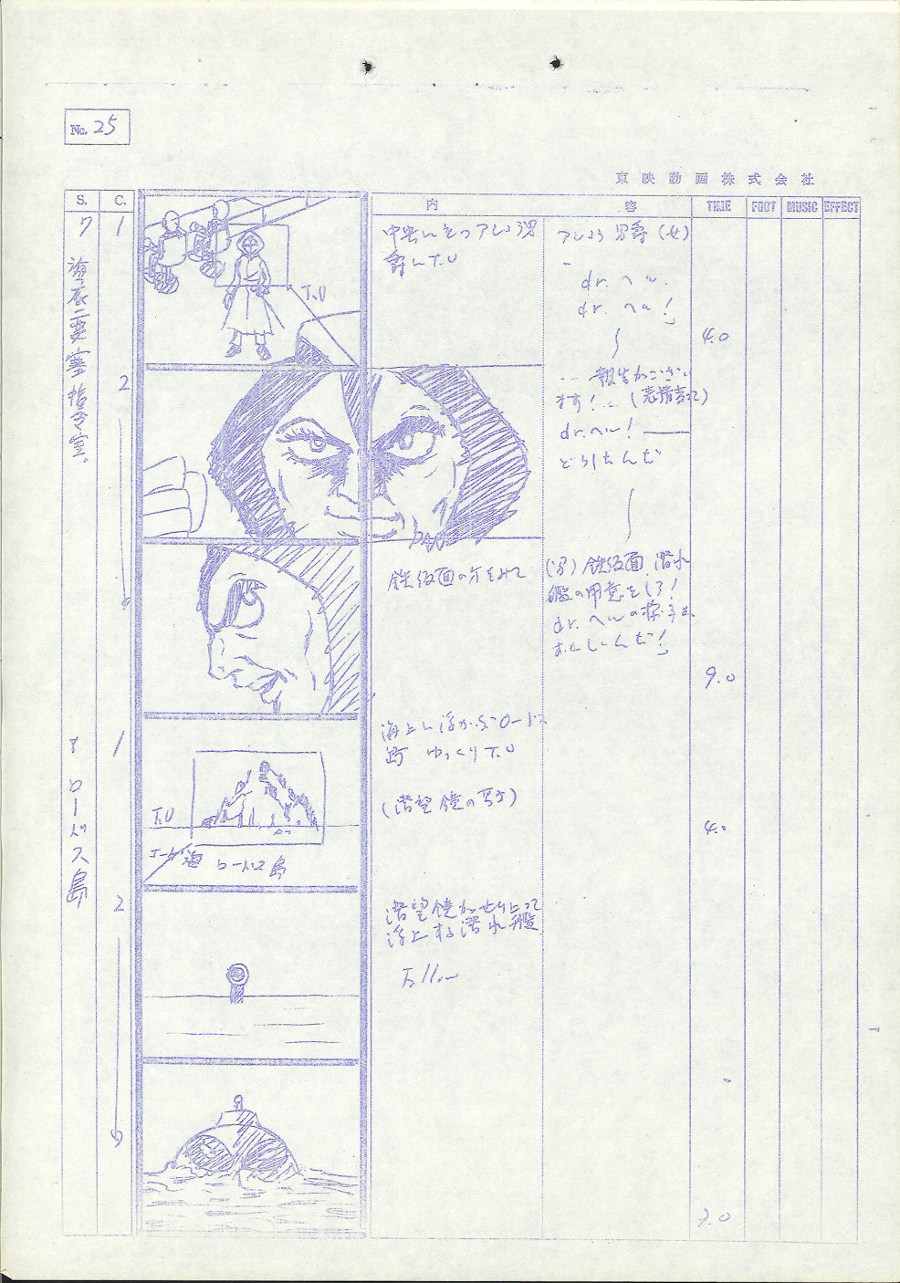 No. 25
東映動画株式会社
S. C. 内 容 TIME FOOT MUSIC EFFECT
7 1
海底要塞指令室。
中央に立つアシュラ男
爵にT.U
T.U
アシュラ男爵(女)
dr. ヘル.
dr. ヘル!
4.0
2
‥報告がござい
ます!‥(表情
dr.ヘル!
どうしたんだ
PAN
鉄仮面の方をみて
(男)鉄仮面 潜水
艦の用意をしろ!
dr.ヘルの様子が
おかしいんだ!
9.0
8 ロードス島
1
海上に浮かぶロードス
島 ゆっくりT.U
(潜望鏡の
T.U
エーゲ海 ロードス島
4.0
2
潜望鏡がせり上って
浮上する潜水艦
3.0